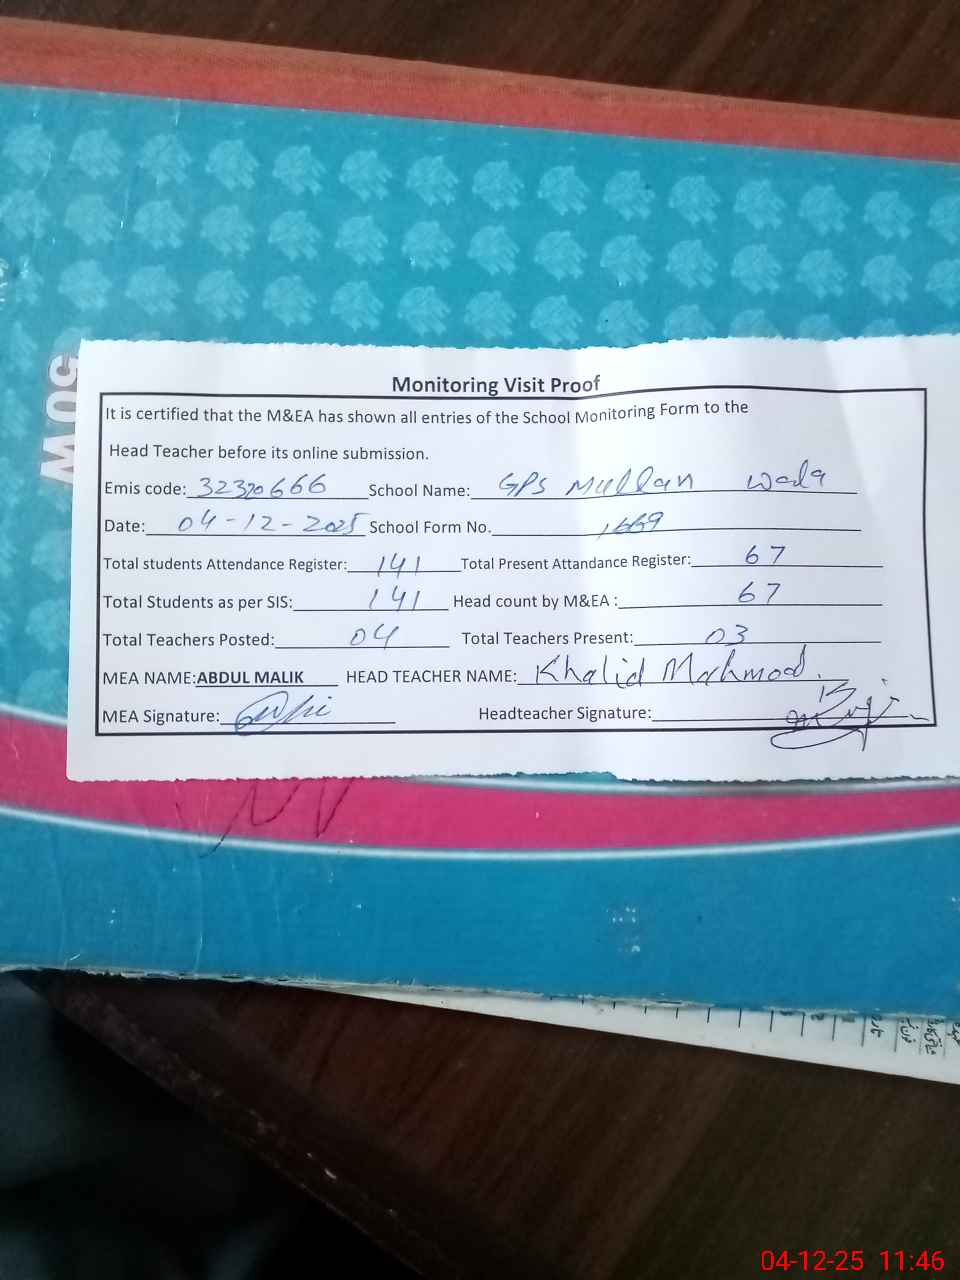 Monitoring Visit Proof
It is certified that the M&EA has shown all entries of the School Monitoring Form to the
Head Teacher before its online submission.
Emis code: 32320666 School Name: GPS Mullan Wala
Date: 04-12-2025 School Form No. 1669
Total students Attendance Register: 141 Total Present Attandance Register: 67
Total Students as per SIS: 141 Head count by M&EA : 67
Total Teachers Posted: 04 Total Teachers Present: 03
MEA NAME: ABDUL MALIK HEAD TEACHER NAME: Khalid Mahmood.
MEA Signature: Headteacher Signature:
04-12-25 11:46